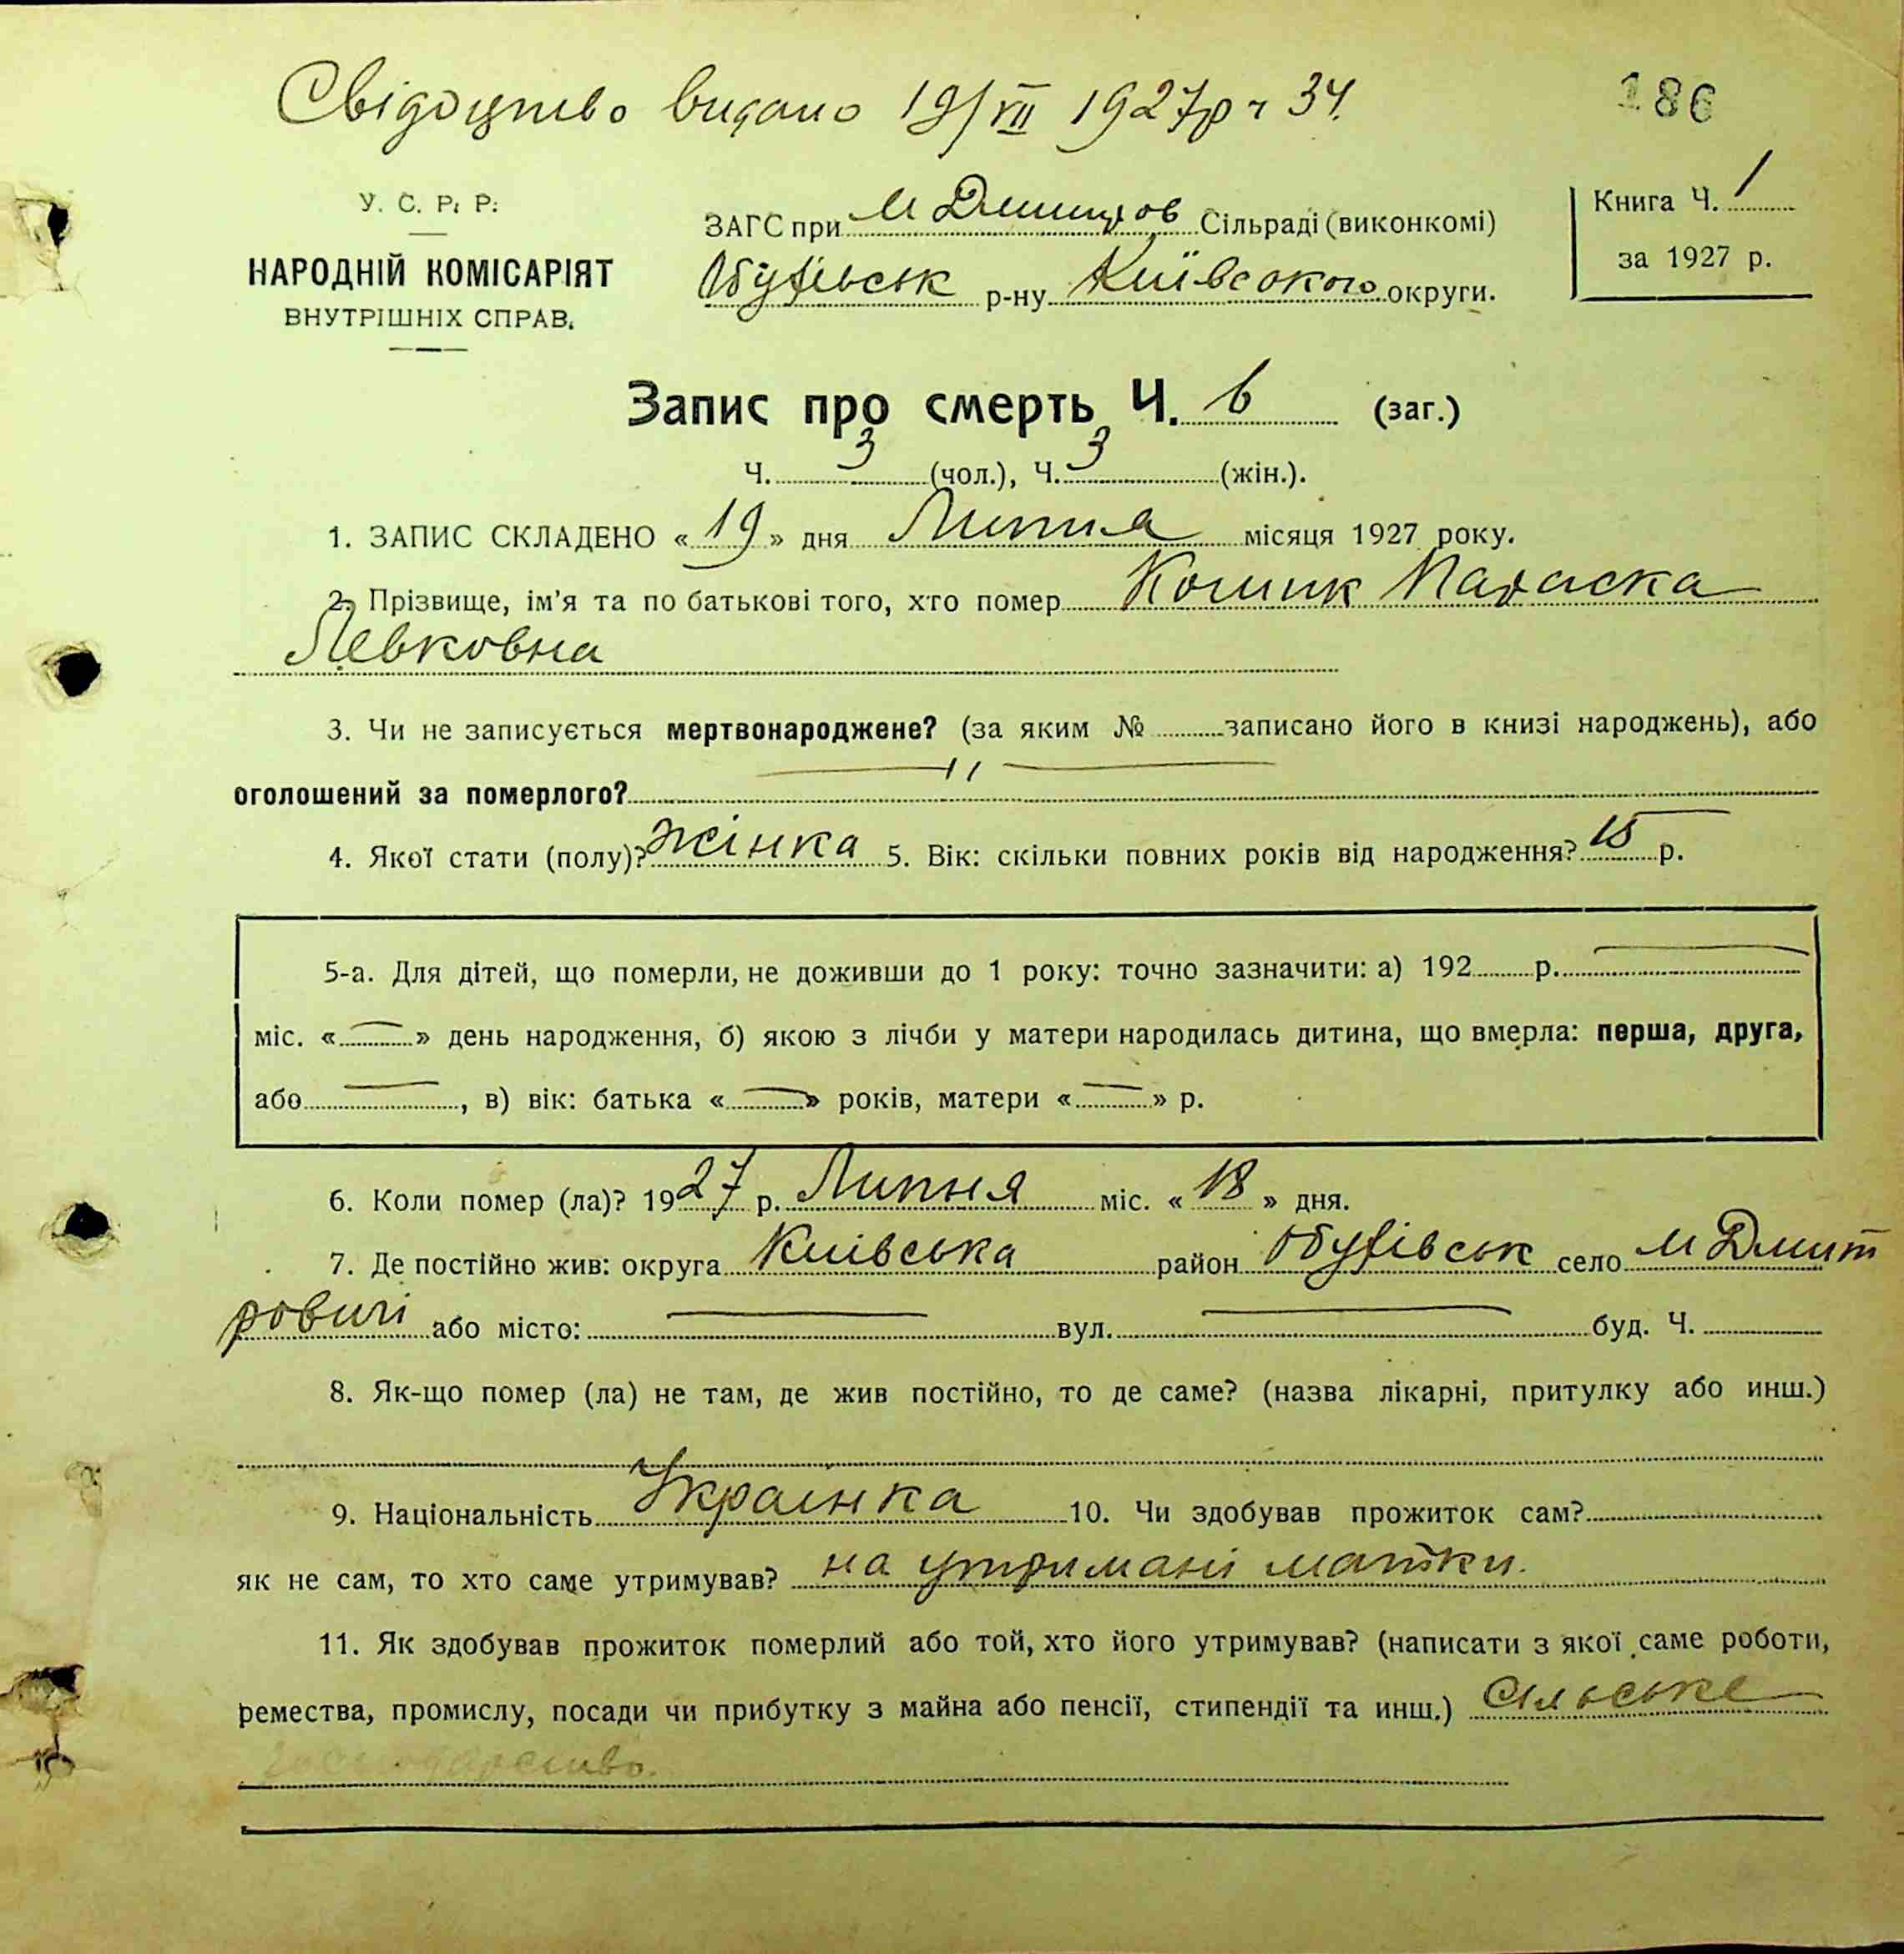 Свідоцтво видано 19/VII 1927р ч 34.
186
У. С. Р. Р.
НАРОДНІЙ КОМІСАРІЯТ
ВНУТРІШНІХ СПРАВ.
ЗАГС при М Дмитров Сільраді (виконкомі)
Обухівськ р-ну Київського округи.
Книга Ч. 1
за 1927 р.
Запис про смерть Ч. 6 (заг.)
Ч. 3 (чол.), Ч. 3 (жін.).
1. ЗАПИС СКЛАДЕНО «19» дня Липня місяця 1927 року.
2. Прізвище, ім'я та по батькові того, хто помер Кошик Параска
Левковна
3. Чи не записується мертвонароджене? (за яким № записано його в книзі народжень), або
оголошений за померлого?
4. Якої стати (полу)? Жінка 5. Вік: скільки повних років від народження? 15 р.
5-а. Для дітей, що померли, не доживши до 1 року: точно зазначити: а) 192 р.
міс. « — » день народження, б) якою з лічби у матери народилась дитина, що вмерла: перша, друга,
або — , в) вік: батька « — » років, матери « — » р.
6. Коли помер (ла)? 1927 р. Липня міс. «18» дня.
7. Де постійно жив: округа Київська район Обухівськ село М Дмит
ровичі або місто: — вул. — буд. Ч.
8. Як-що помер (ла) не там, де жив постійно, то де саме? (назва лікарні, притулку або инш.)
9. Національність Українка 10. Чи здобував прожиток сам?
як не сам, то хто саме утримував? на утримані матки.
11. Як здобував прожиток померлий або той, хто його утримував? (написати з якої саме роботи,
ремества, промислу, посади чи прибутку з майна або пенсії, стипендії та инш.) Сільське
господарство.